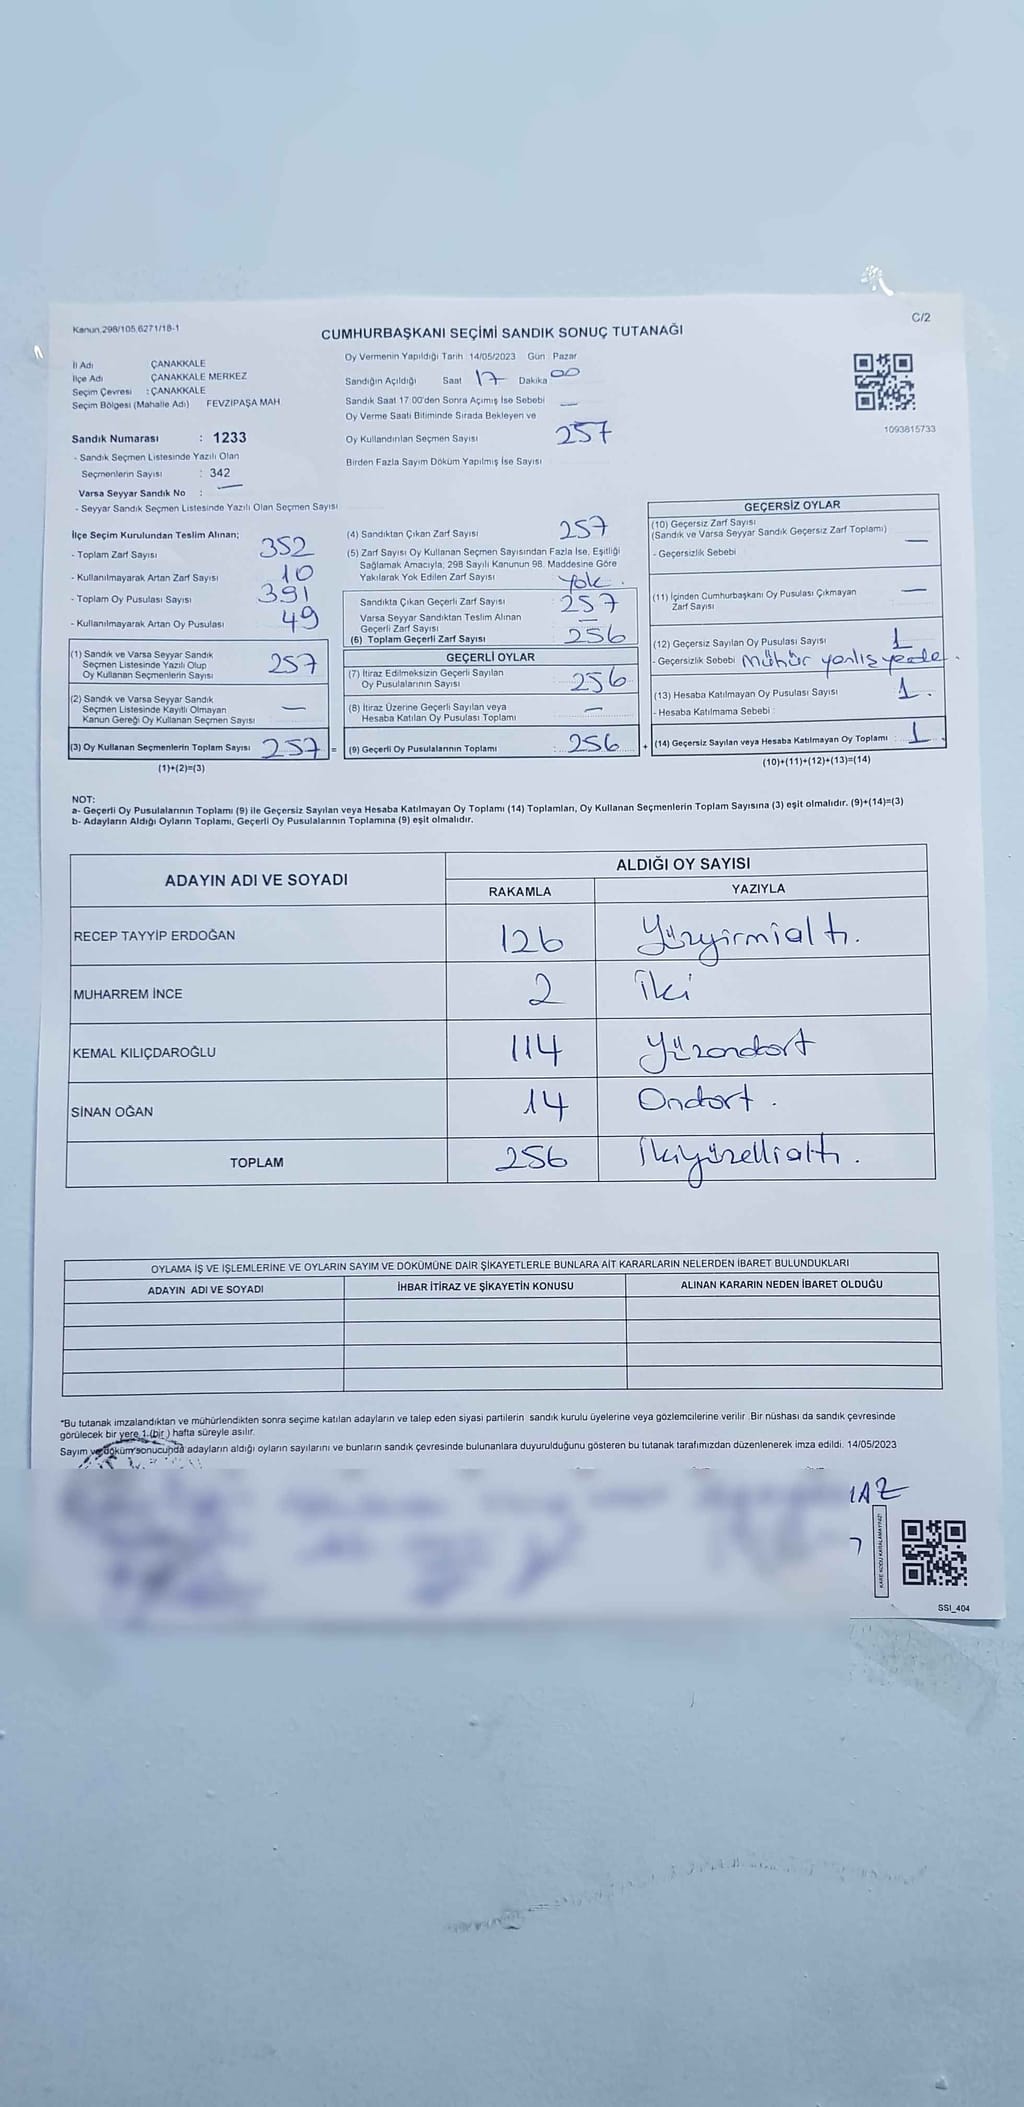 Kanun,298/105,6271/18-1
C/2
CUMHURBAŞKANI SEÇİMİ SANDIK SONUÇ TUTANAĞI
İl Adı ÇANAKKALE
İlçe Adı ÇANAKKALE MERKEZ
Seçim Çevresi : ÇANAKKALE
Seçim Bölgesi (Mahalle Adı) FEVZİPAŞA MAH
Sandık Numarası : 1233
- Sandık Seçmen Listesinde Yazılı Olan
Seçmenlerin Sayısı : 342
Varsa Seyyar Sandık No : —
- Seyyar Sandık Seçmen Listesinde Yazılı Olan Seçmen Sayısı
Oy Vermenin Yapıldığı Tarih 14/05/2023 Gün Pazar
Sandığın Açıldığı Saat 17 Dakika 00
Sandık Saat 17:00'den Sonra Açımış İse Sebebi —
Oy Verme Saati Bitiminde Sırada Bekleyen ve
Oy Kullandırılan Seçmen Sayısı 257
Birden Fazla Sayım Döküm Yapılmış İse Sayısı
1093815733
İlçe Seçim Kurulundan Teslim Alınan;
- Toplam Zarf Sayısı 352
- Kullanılmayarak Artan Zarf Sayısı 10
- Toplam Oy Pusulası Sayısı 391
- Kullanılmayarak Artan Oy Pusulası 49
(1) Sandık ve Varsa Seyyar Sandık
Seçmen Listesinde Yazılı Olup
Oy Kullanan Seçmenlerin Sayısı 257
(2) Sandık ve Varsa Seyyar Sandık
Seçmen Listesinde Kayıtlı Olmayan
Kanun Gereği Oy Kullanan Seçmen Sayısı —
(3) Oy Kullanan Seçmenlerin Toplam Sayısı 257 =
(1)+(2)=(3)
(4) Sandıktan Çıkan Zarf Sayısı 257
(5) Zarf Sayısı Oy Kullanan Seçmen Sayısından Fazla İse, Eşitliği
Sağlamak Amacıyla; 298 Sayılı Kanunun 98. Maddesine Göre
Yakılarak Yok Edilen Zarf Sayısı Yok.
Sandıkta Çıkan Geçerli Zarf Sayısı 257
Varsa Seyyar Sandıktan Teslim Alınan
Geçerli Zarf Sayısı —
(6) Toplam Geçerli Zarf Sayısı 256
GEÇERLİ OYLAR
(7) İtiraz Edilmeksizin Geçerli Sayılan
Oy Pusulalarının Sayısı 256
(8) İtiraz Üzerine Geçerli Sayılan veya
Hesaba Katılan Oy Pusulası Toplamı —
(9) Geçerli Oy Pusulalarının Toplamı : 256 +
GEÇERSİZ OYLAR
(10) Geçersiz Zarf Sayısı
(Sandık ve Varsa Seyyar Sandık Geçersiz Zarf Toplamı) —
- Geçersizlik Sebebi
(11) İçinden Cumhurbaşkanı Oy Pusulası Çıkmayan
Zarf Sayısı —
(12) Geçersiz Sayılan Oy Pusulası Sayısı 1
- Geçersizlik Sebebi Mühür yanlış yerde.
(13) Hesaba Katılmayan Oy Pusulası Sayısı 1.
- Hesaba Katılmama Sebebi :
(14) Geçersiz Sayılan veya Hesaba Katılmayan Oy Toplamı : 1.
(10)+(11)+(12)+(13)=(14)
NOT:
a- Geçerli Oy Pusulalarının Toplamı (9) ile Geçersiz Sayılan veya Hesaba Katılmayan Oy Toplamı (14) Toplamları, Oy Kullanan Seçmenlerin Toplam Sayısına (3) eşit olmalıdır. (9)+(14)=(3)
b- Adayların Aldığı Oyların Toplamı, Geçerli Oy Pusulalarının Toplamına (9) eşit olmalıdır.
ADAYIN ADI VE SOYADI ALDIĞI OY SAYISI
RAKAMLA YAZIYLA
RECEP TAYYİP ERDOĞAN 126 Yüzyirmialtı.
MUHARREM İNCE 2 İki
KEMAL KILIÇDAROĞLU 114 Yüzondort
SİNAN OĞAN 14 Ondort.
TOPLAM 256 İkiyüzellialtı.
OYLAMA İŞ VE İŞLEMLERİNE VE OYLARIN SAYIM VE DÖKÜMÜNE DAİR ŞİKAYETLERLE BUNLARA AİT KARARLARIN NELERDEN İBARET BULUNDUKLARI
ADAYIN ADI VE SOYADI İHBAR İTİRAZ VE ŞİKAYETİN KONUSU ALINAN KARARIN NEDEN İBARET OLDUĞU
*Bu tutanak imzalandıktan ve mühürlendikten sonra seçime katılan adayların ve talep eden siyasi partilerin sandık kurulu üyelerine veya gözlemcilerine verilir. Bir nüshası da sandık çevresinde
görülecek bir yere 1.(bir ) hafta süreyle asılır.
Sayım ve döküm sonucunda adayların aldığı oyların sayılarını ve bunların sandık çevresinde bulunanlara duyurulduğunu gösteren bu tutanak tarafımızdan düzenlenerek imza edildi. 14/05/2023
KARE KODU KARALAMAYINIZ!
SSI_404